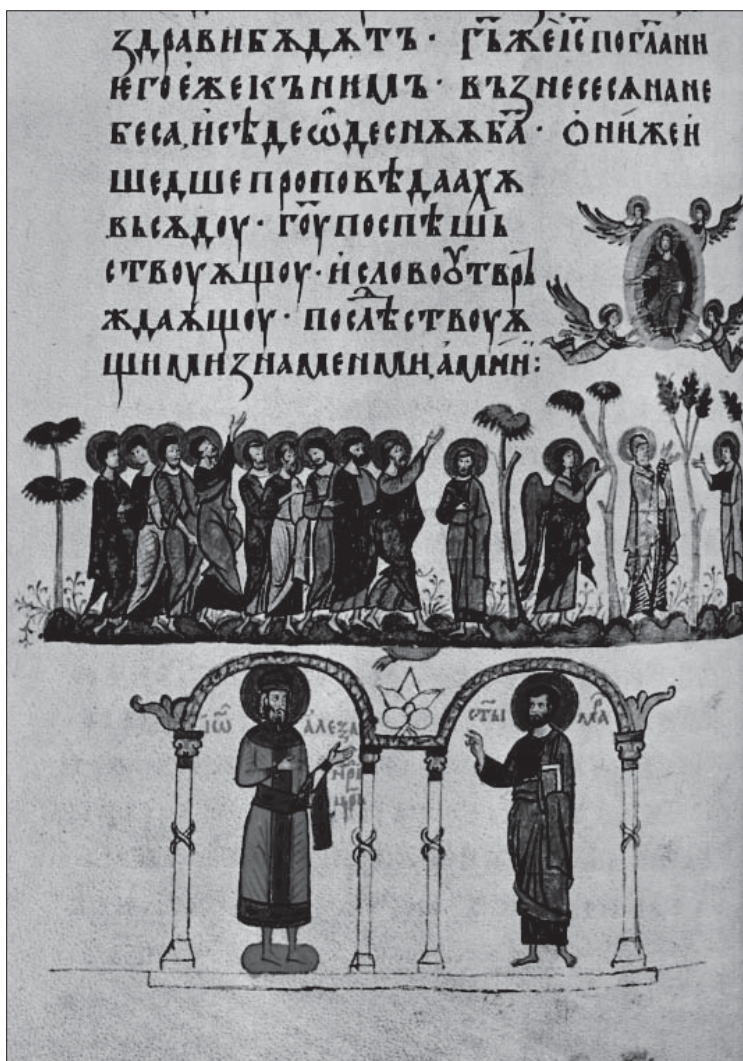 здравибѫдѫтъ · г҃ь же і҃с по гл҃ани
ꙗгоє́же къ нимъ · възнесесѧ на не
беса, и сѣде ѡ деснѫѫ б҃а · ѻни́же и
шедше проповѣдаахѫ
вьсѫдоу · г҃оу поспѣшь
ствоуѫщоу · и слово ꙋтврь
ждаѫщоу · послѣⷣствоуѫ
щими знаменми, а́мин҃ :
і҃ѡ алеѯа
нⷣрь
ц҃рь
ст҃ы маⷬ